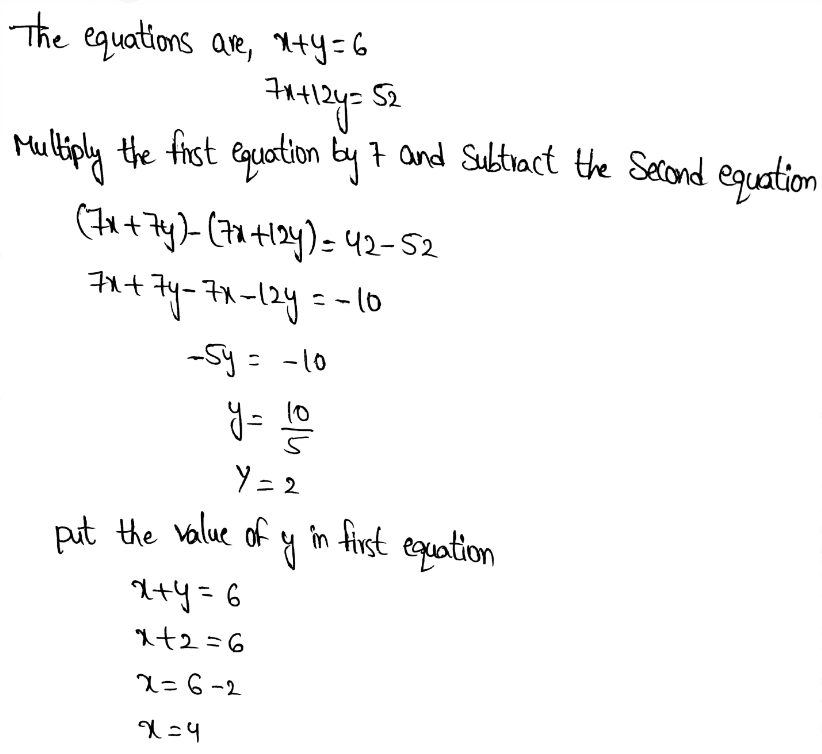 The equations are, x+y=6
7x+12y=52
Multiply the first equation by 7 and Subtract the Second equation
(7x+7y)-(7x+12y)=42-52
7x+7y-7x-12y=-10
-5y=-10
y=10/5
Y=2
put the value of y in first equation
x+y=6
x+2=6
x=6-2
x=4